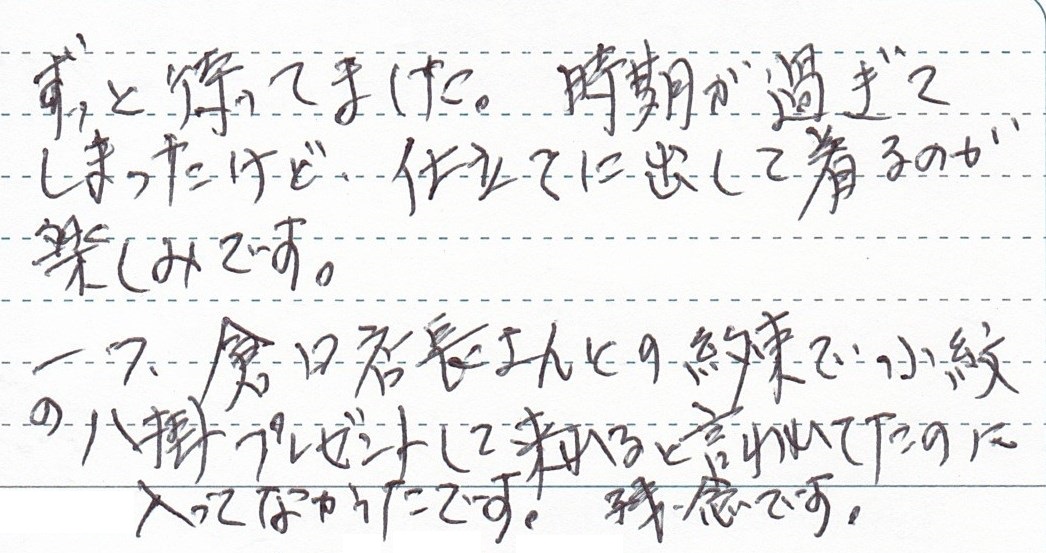 ずっと待ってました。時期が過ぎて
しまったけど、仕立てに出して着るのが
楽しみです。
一つ、倉口店長さんとの約束で小紋
の八掛プレゼントして来れると言われてたのに
入ってなかったです。残念です。